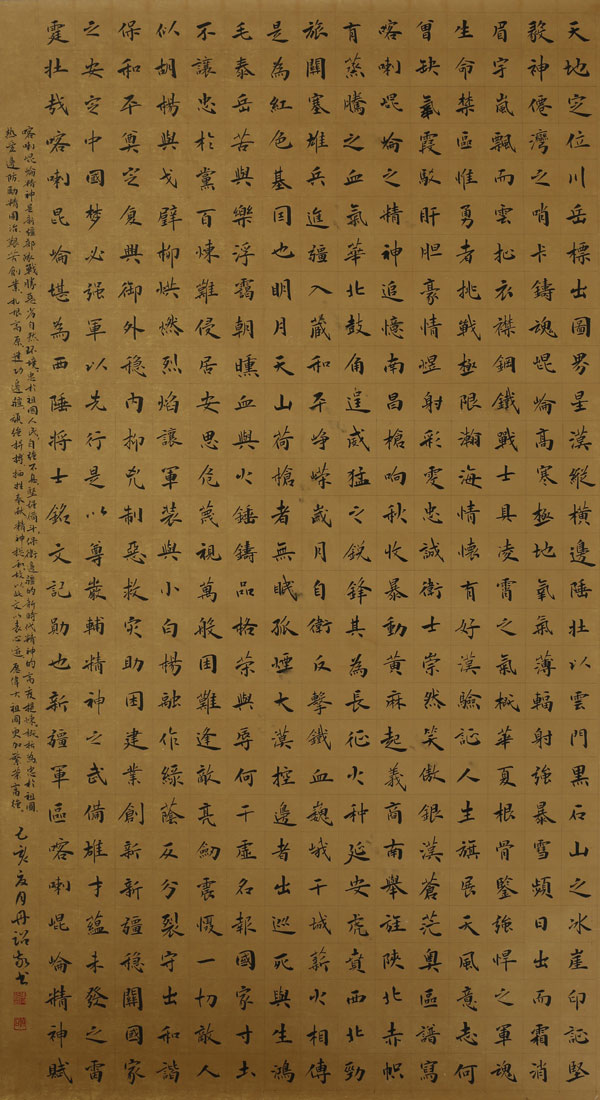 天地定位川岳標出圖界星漠縱橫邊陲壯以雲門黑石山之冰崖印証堅
毅神僊灣之哨卡鑄魂崐崙高寒極地氧氣薄輻射強暴雪頻日出而霜消
眉宇嵐飄而雲扯衣襟鋼鐵戰士具凌霄之氣概華夏根骨鑒強悍之軍魂
生命禁區惟勇者挑戰極限瀚海情懷有好漢驗証人生旗展天風意志何
曾缺氧霞馭肝胆豪情煜射彩雯忠誠衛士崇然笑傲銀漢蒼茫奧區譜寫
喀喇崐崙之精神追憶南昌槍响秋收暴動黃麻起義商南舉旌陝北赤幟
有蒸騰之血氣華北鼓角逞威猛之銳鋒其為長征火种延安虎賁西北勁
旅關塞雄兵進疆入藏和平崢嶸歲月自衛反擊鐵血巍峨干城薪火相傳
是為紅色基因也明月天山荷槍者無眠孤煙大漠控邊者出巡死與生鴻
毛泰岳苦與樂浮靄朝曛血與火錘鑄品格榮與辱何干虛名報國家寸土
不讓忠於黨百煉難侵居安思危蔑視萬般困難逢敵亮劍震懾一切敵人
似胡楊與戈壁柳烘燃烈焰讓軍裝與小白楊融作綠蔭反分裂守土和諧
保和平奠定復興御外穩內抑兇制惡救灾助困建業創新新疆穩關國家
之安定中國梦必强軍以先行是以尊嚴輔精神之武備雄才蘊未發之雷
霆壯哉喀喇昆崙堪為西陲将士銘文記勛也新疆軍區喀喇崐崙精神賦
喀喇崐崙精神是新疆部隊戰勝惡劣自然環境忠於祖國人民自強不息堅持奮斗保衛邊疆的新時代精神的高度提煉
熱愛邊防勤精圖治艱苦創業扎根高原建功邊疆
偉大祖國更加繁榮富強
乙亥
月丹
書